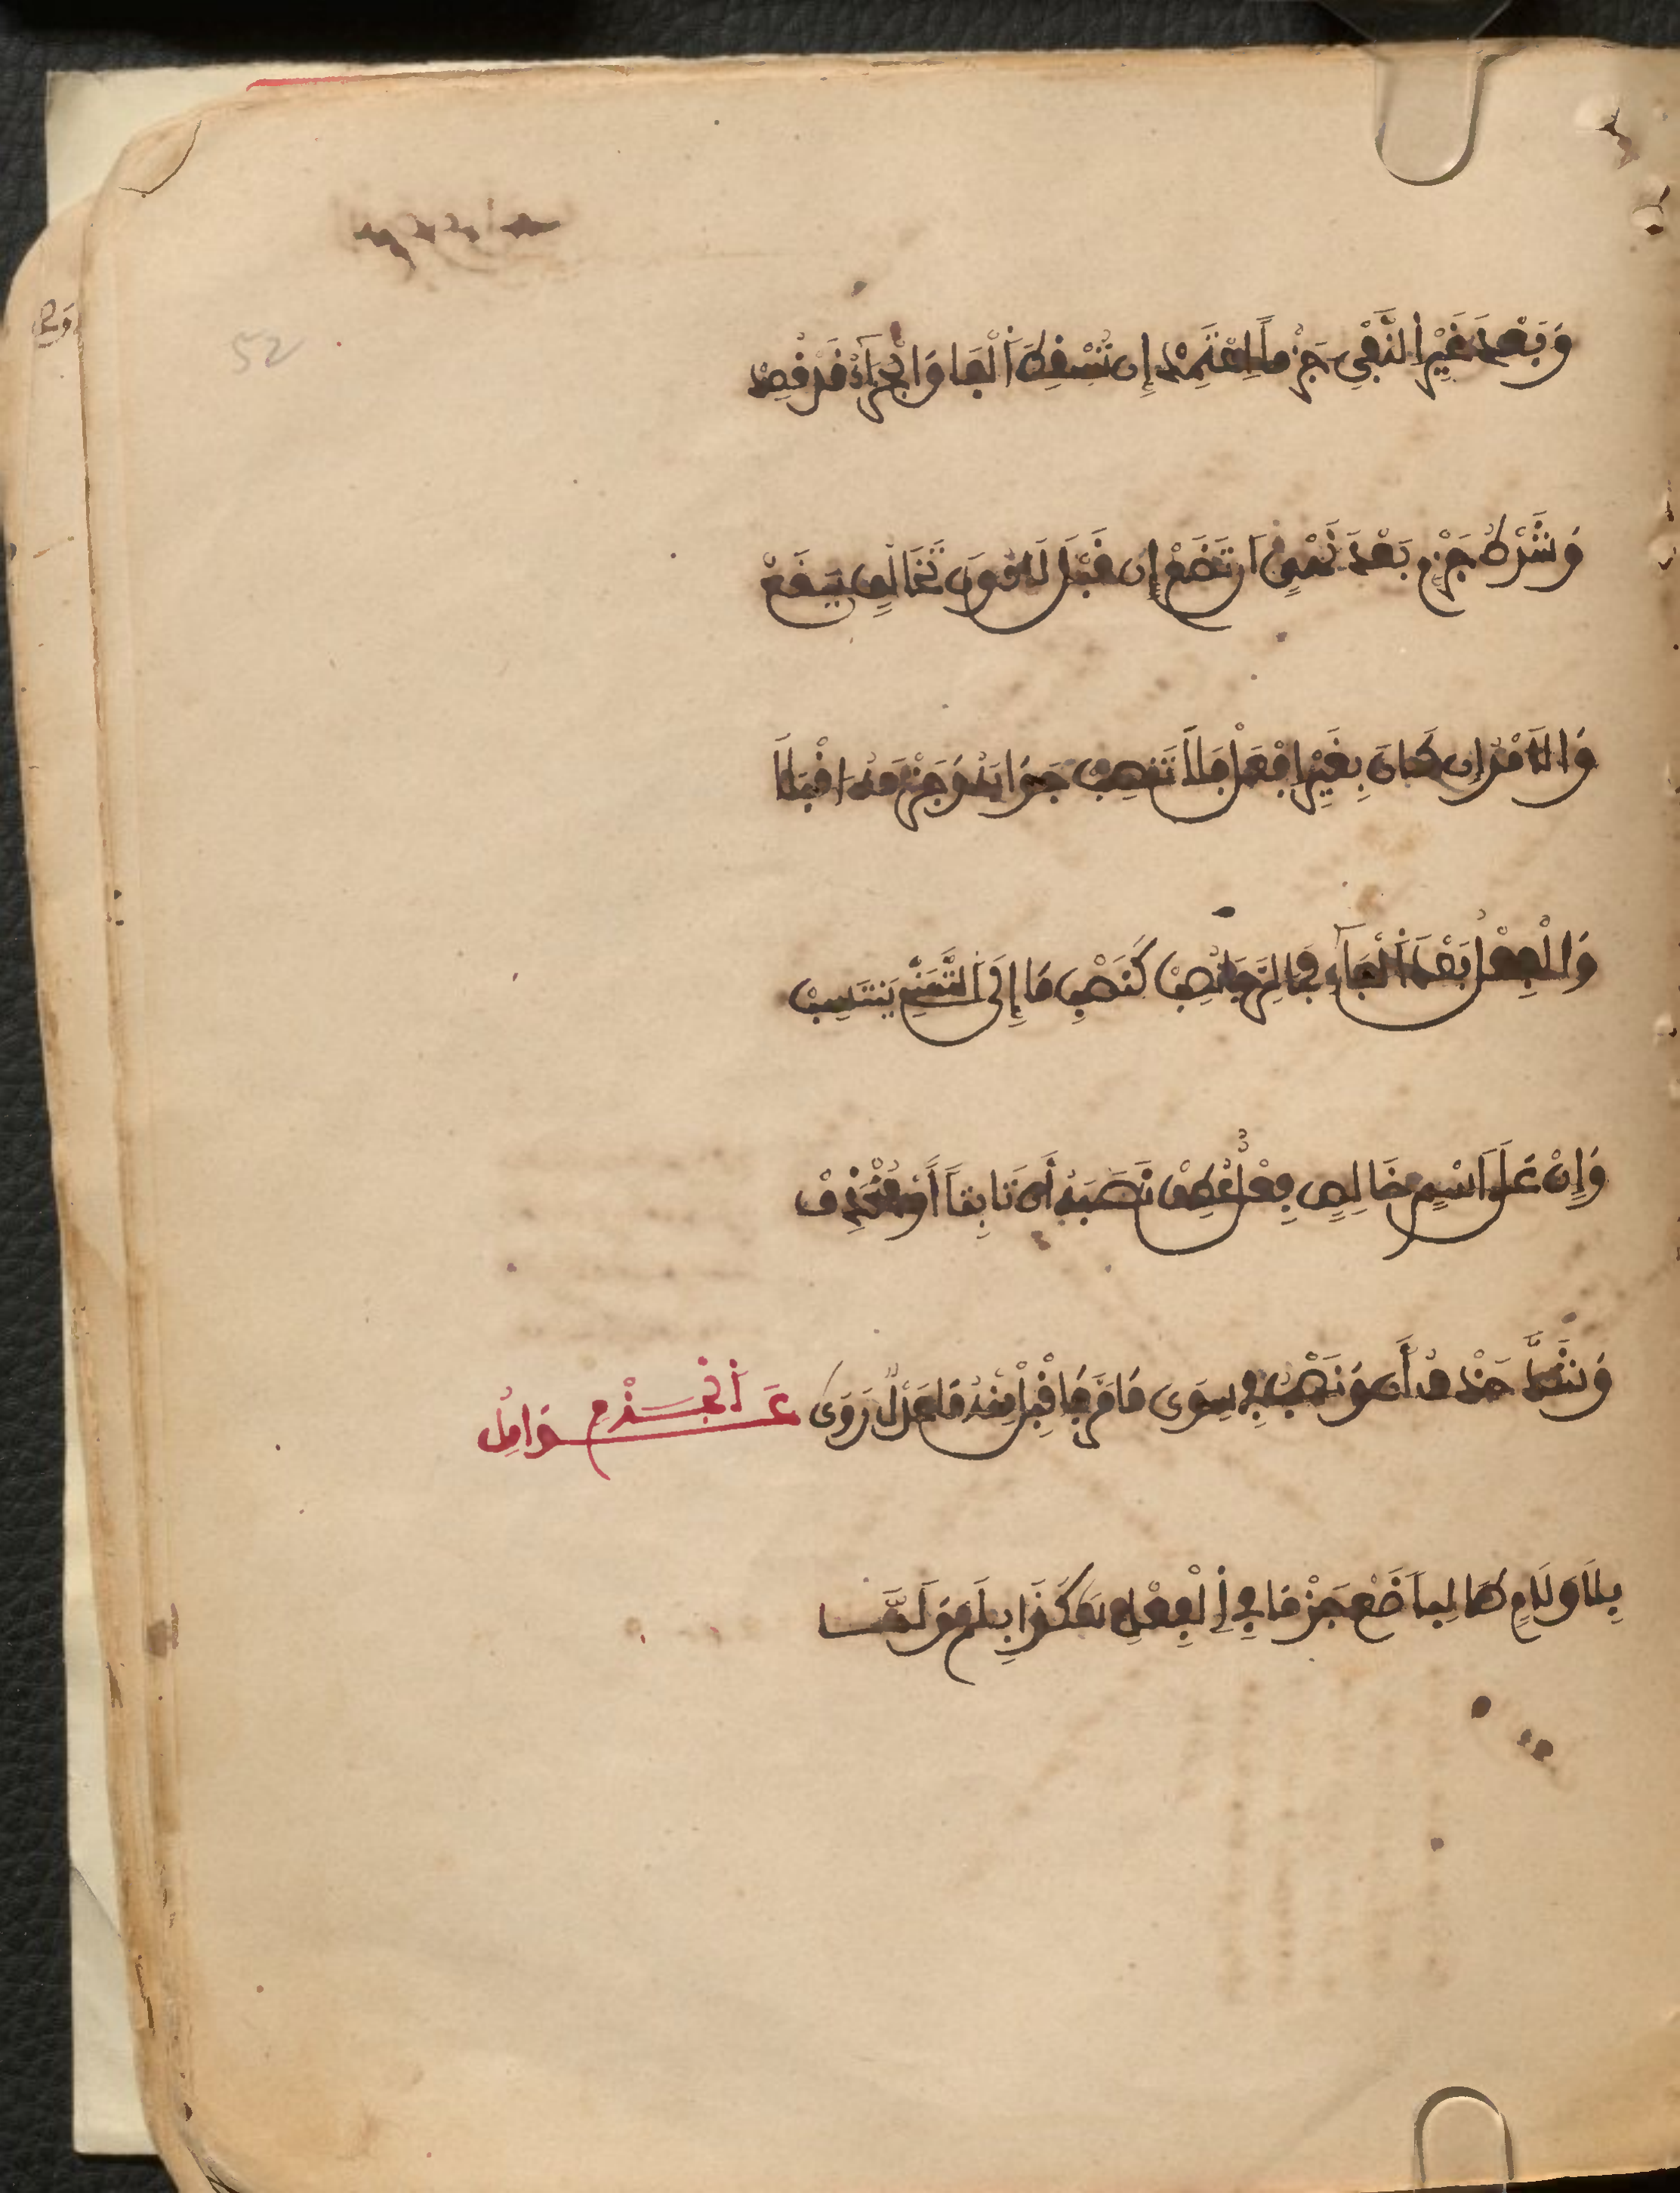 52
وَبَعْدَ غَيْرِ النَّفْيِ جَزْماً اِعْتَمِدْ إِن تُسْقِطَ اَلْفَا وَالْجَزَآءُ قَدْ قُصِدْ
وَشَرْطُ جَزْمٍ بَعْدَ نَهْيٍ اَن تَضَعْ إِن قَبْلَ لَا دُونَ تَخَالُفٍ يَقَعْ
وَالَامْرُ إِن كَانَ بِغَيْرِ اِفْعَلْ فَلَا تَنصِبْ جَوَابَهُ وَجَزْمَهُ اَقْبَلَا
وَالْفِعْلُ بَعْدَ اَلْفَآءِ فِي الرَّجَا نُصِبْ كَنَصْبِ مَا إِلَى اَلتَّمَنِّي يَنتَسِبْ
وَإِنْ عَلَى اَسْمٍ خَالِصٍ فِعْلٌ عُطِفْ تَنصِبُهُ أَن ثَابِتاً أَوْ مُنْحَذِفْ
وَشَذَّ حَذْفُ أَن وَنَصْبٌ فِي سِوَى مَا مَرَّ فَاقْبَلْ مِنْهُ مَا عَدْلٌ رَوَى عَوَامِلُ اَلْجَزْمِ
بِلَا وَلَامٍ طَالِباً ضَعْ جَزْمَا فِي اِلْفِعْلِ هَكَذَا بِلَمْ وَلَمَّا